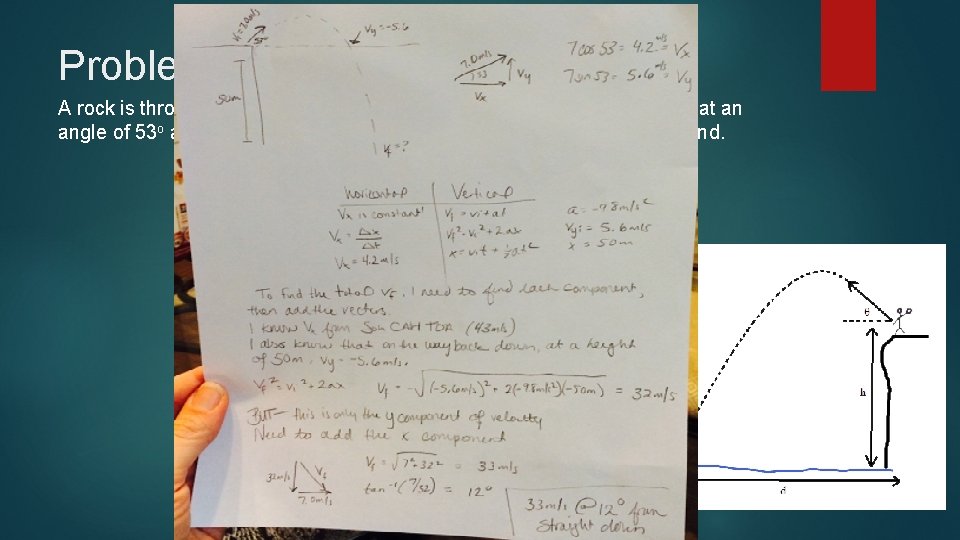 Proble
A rock is thro at an
angle of 53o a nd.
Vi=7.0m/s
53
Vy=-5.6
50m
Vf=?
7.0m/s
53
Vy
Vx
7cos53=4.2m/s=Vx
7sin53=5.6m/s=Vy
Horizontal Vertical
Vx is constant!
Vx = Δx/Δt
Vx = 4.2m/s
Vf = vi+at
Vf²=Vi²+2ax
x=vit+½at²
a=-9.8m/s²
Vyi=5.6m/s
x = 50m
To find the total Vf, I need to find each component,
then add the vectors.
I know Vx from Soh CAH TOA
I also know that on the way back down, at a height
of 50m, Vy=-5.6m/s.
Vf²=Vi²+2ax Vf = -√(-5.6m/s)²+2(-9.8m/s²)(-50m) = 32m/s
BUT- this is only the y component of velocity
Need to add the x component
32m/s
Vf
7.0m/s
Vf = √7²+32² = 33m/s
tan⁻¹(7/32) = 12°
33m/s @12° from
straight down
θ
h
d